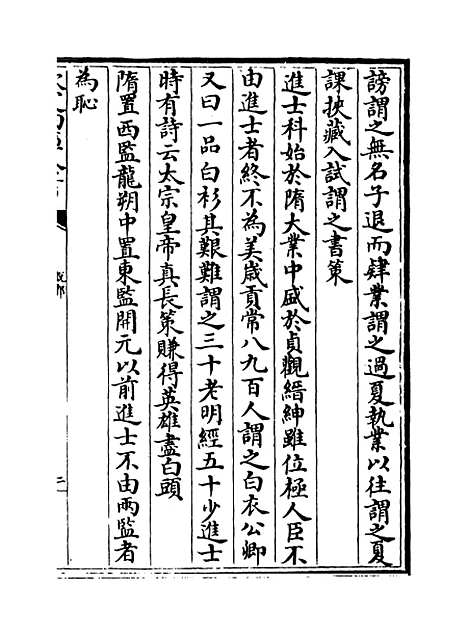 謗謂之無名子退而肄業謂之過夏執業以往謂之夏
課挾藏入試謂之書策
進士科始於隋大業中盛於貞觀縉紳雖位極人臣不
由進士者終不為美歲貢常八九百人謂之白衣公卿
又曰一品白衫其艱難謂之三十老明經五十少進士
時有詩云太宗皇帝真長策賺得英雄盡白頭
隋置西監龍朔中置東監開元以前進士不由兩監者
為恥